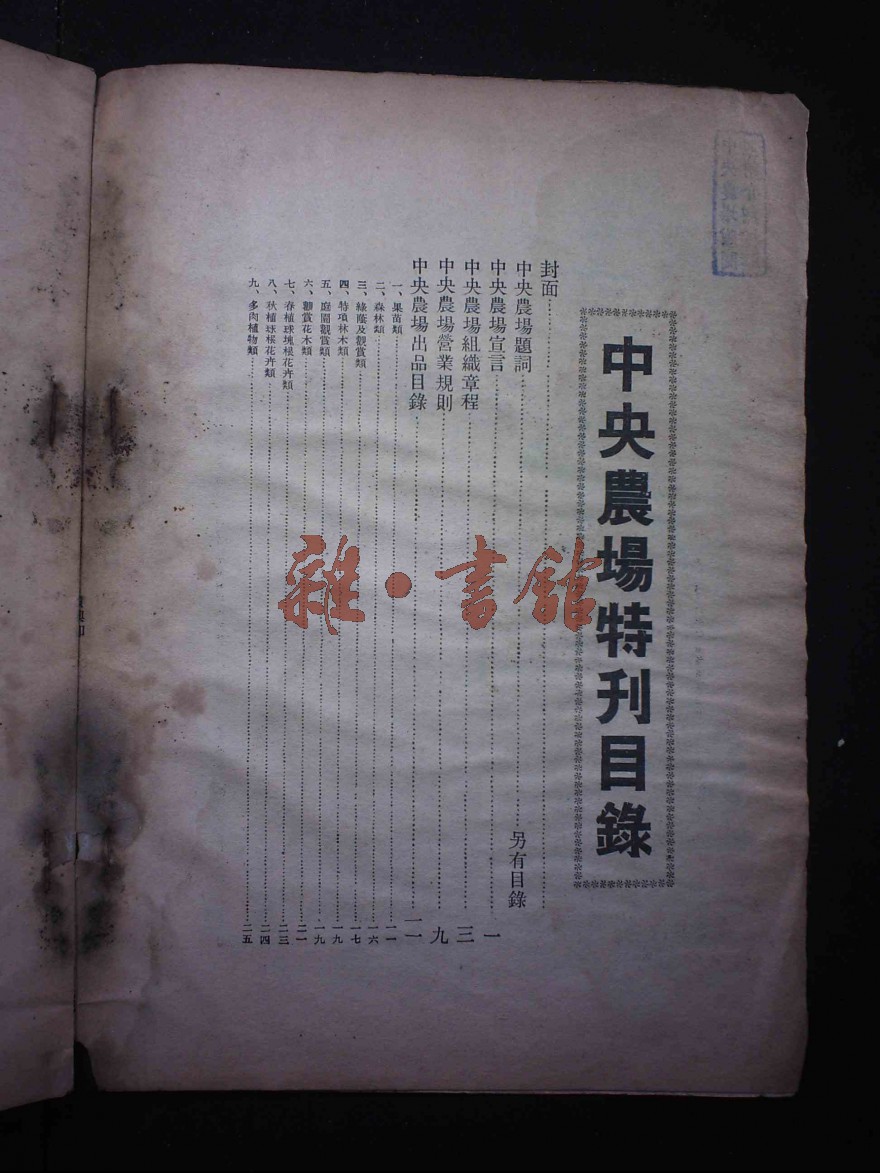 中央農場特刊目錄
封面
中央農場題詞 另有目錄
中央農場宣言 一
中央農場組織章程 三
中央農場營業規則 九
中央農場出品目錄 一一
一、果苗類 一一
二、森林類 一六
三、綠蔭及觀賞類 一七
四、特項林木類 一九
五、庭園觀賞類 一九
六、觀賞花木類 二一
七、春植球塊根花卉類 二三
八、秋植球根花卉類 二四
九、多肉植物類 二五
雜·書館